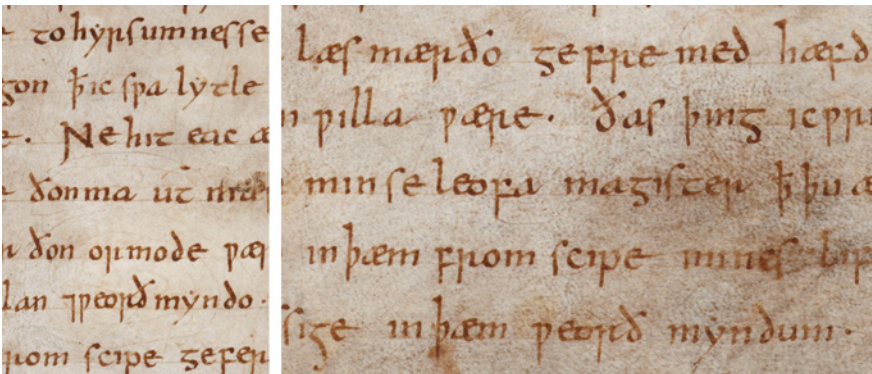 tohyrsumnesse
gon ꝥic sƿa lytle
Ne hit eac
ðonma ut
ðon ormode ƿær
lan ⁊ƿeorðmyndo·
rom scipe gefer
læs mærðo gefre med hæfd
n ƿilla ƿære· ðas þing icƿri
min se leofa magister ꝥþu æ
inþæm from scipe mines lif
sige inþæm ƿeorð myndum·